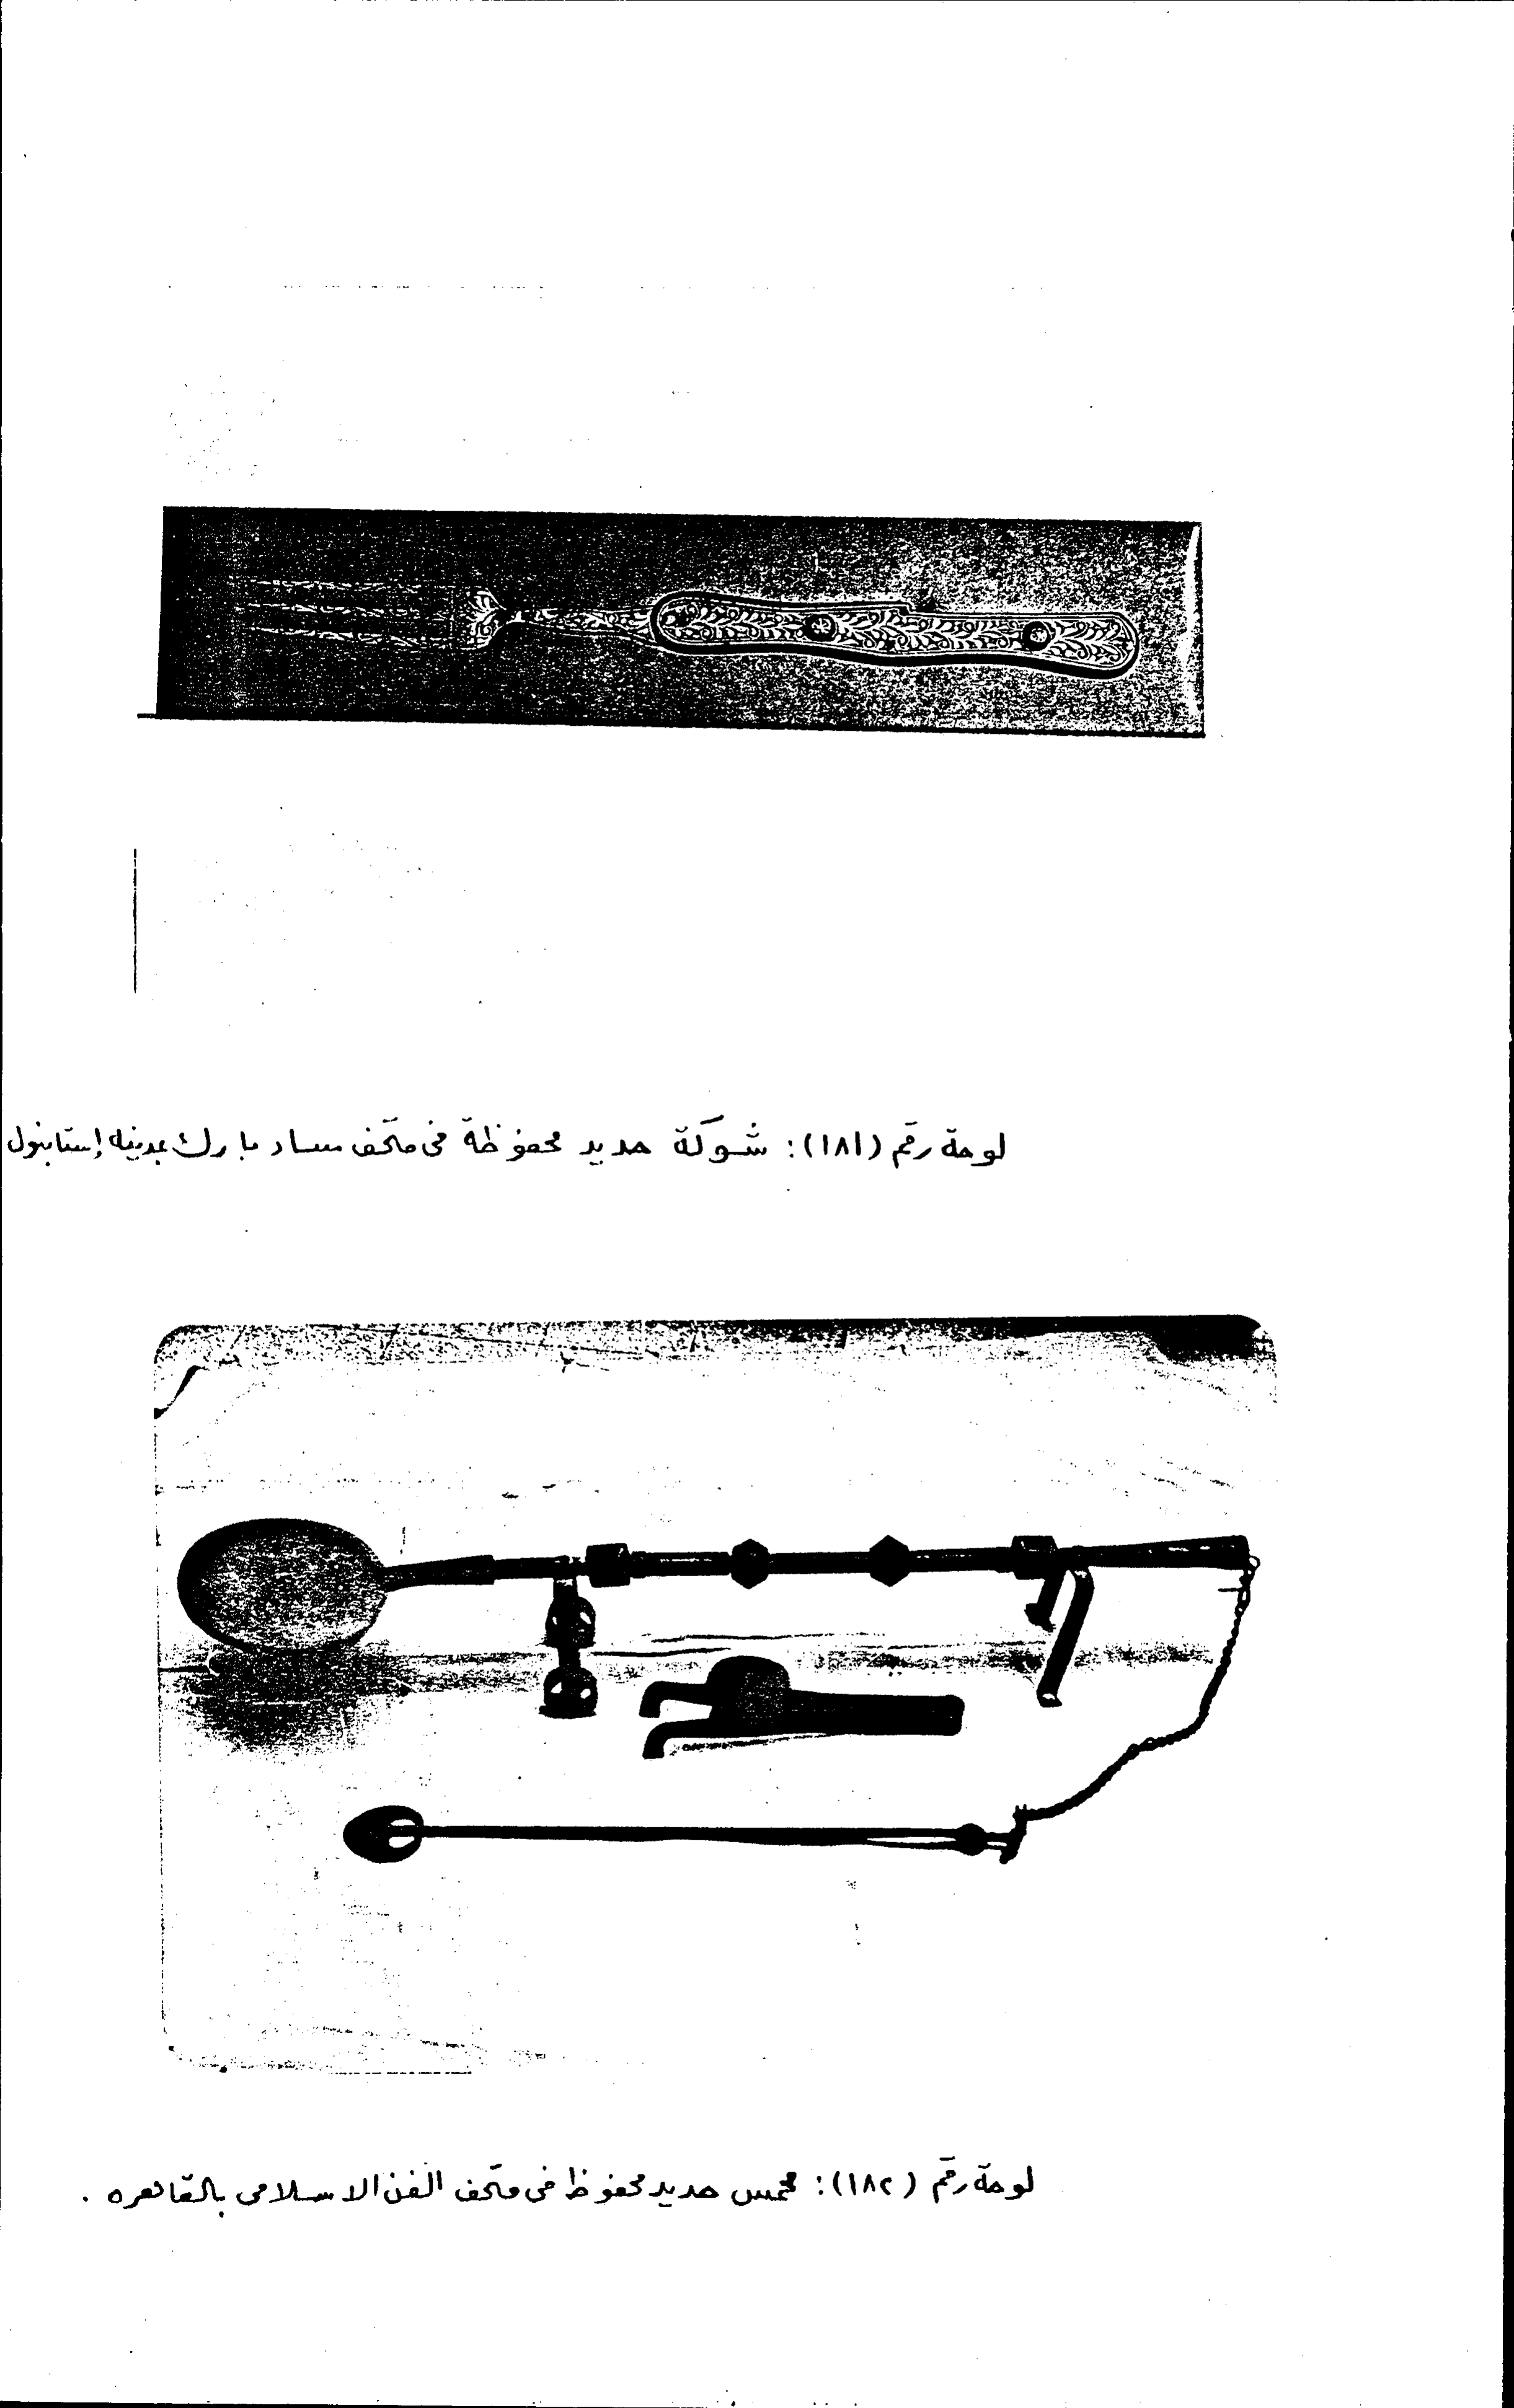 لوحة رقم (١٨١): شوكة حديد محفوظة فى متحف ساد بارك بمدينه إستانبول
لوحة رقم (١٨٢): محمس حديد محفوظ فى متحف الفن الاسلامى بالقاهره .